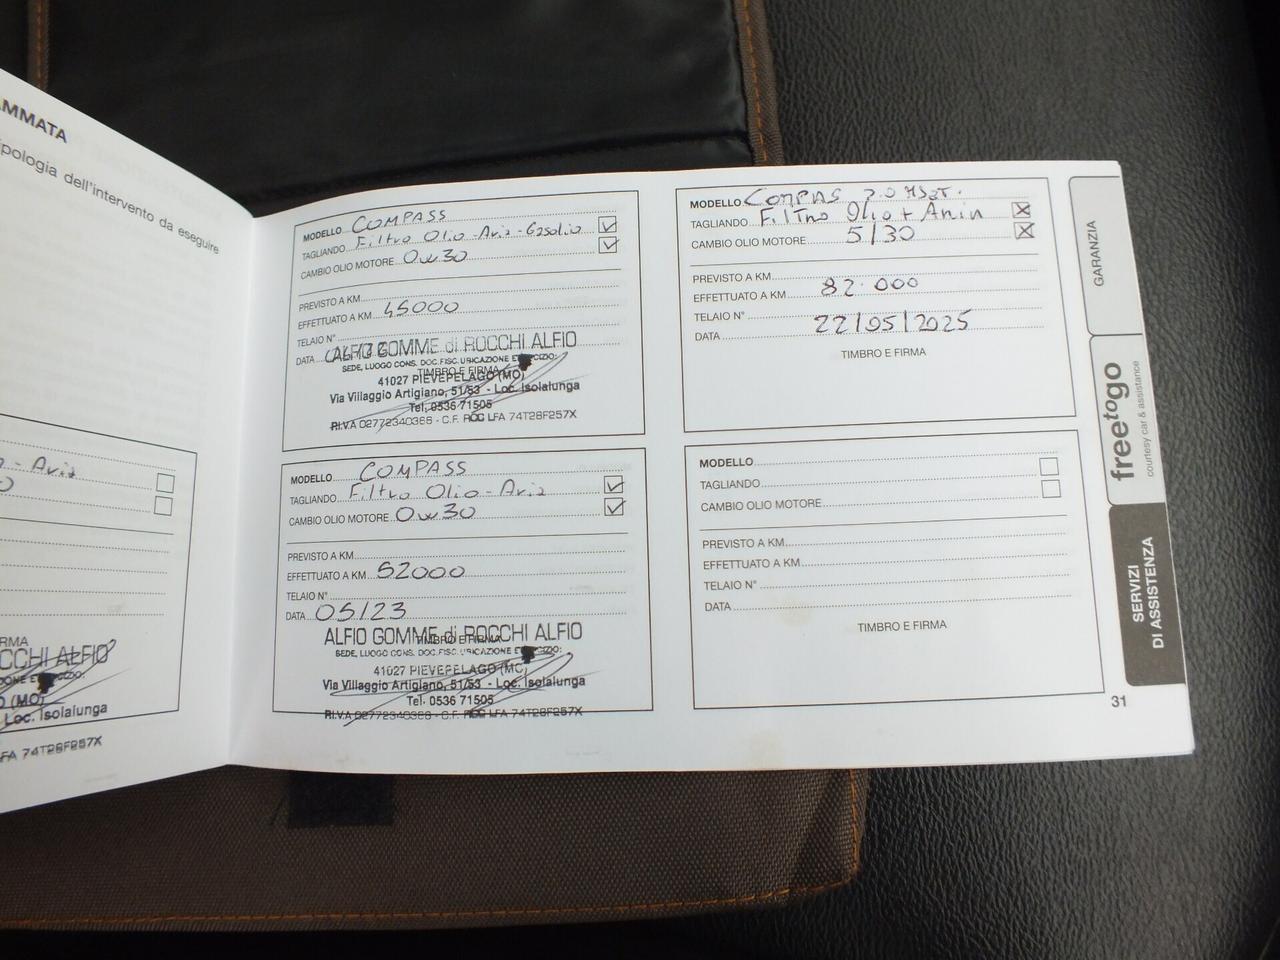 AMMATA
ipologia dell'intervento da eseguire
- Aria
RMA
OCCHI ALFIO
(MO)
Loc. Isolalunga
LFA 74T28F257X
MODELLO COMPASS
TAGLIANDO Filtro Olio - Aria - Gasolio
CAMBIO OLIO MOTORE 0w30
PREVISTO A KM
EFFETTUATO A KM 45000
TELAIO N°
DATA
ALFIO GOMME di ROCCHI ALFIO
SEDE, LUOGO CONS. DOC.FISC. UBICAZIONE ESERCIZIO:
TIMBRO E FIRMA
41027 PIEVEPELAGO (MO)
Via Villaggio Artigiano, 51/53 - Loc. Isolalunga
Tel. 0536 71505
P.I.V.A 02772340366 - C.F. RCC LFA 74T28F257X
MODELLO COMPASS
TAGLIANDO Filtro Olio - Aria
CAMBIO OLIO MOTORE 0w30
PREVISTO A KM
EFFETTUATO A KM 52000
TELAIO N°
DATA 05/23
TIMBRO E FIRMA
ALFIO GOMME di ROCCHI ALFIO
SEDE, LUOGO CONS. DOC.FISC. UBICAZIONE ESERCIZIO:
41027 PIEVEPELAGO (MO)
Via Villaggio Artigiano, 51/53 - Loc. Isolalunga
Tel. 0536 71505
P.I.V.A 02772340366 - C.F. RCC LFA 74T28F257X
MODELLO COMPAS
TAGLIANDO Filtro Olio + Aria
CAMBIO OLIO MOTORE 5/30
PREVISTO A KM
EFFETTUATO A KM 82.000
TELAIO N°
DATA 22/05/2025
TIMBRO E FIRMA
MODELLO
TAGLIANDO
CAMBIO OLIO MOTORE
PREVISTO A KM
EFFETTUATO A KM
TELAIO N°
DATA
TIMBRO E FIRMA
GARANZIA
freetogo
courtesy car & assistance
SERVIZI
DI ASSISTENZA
31